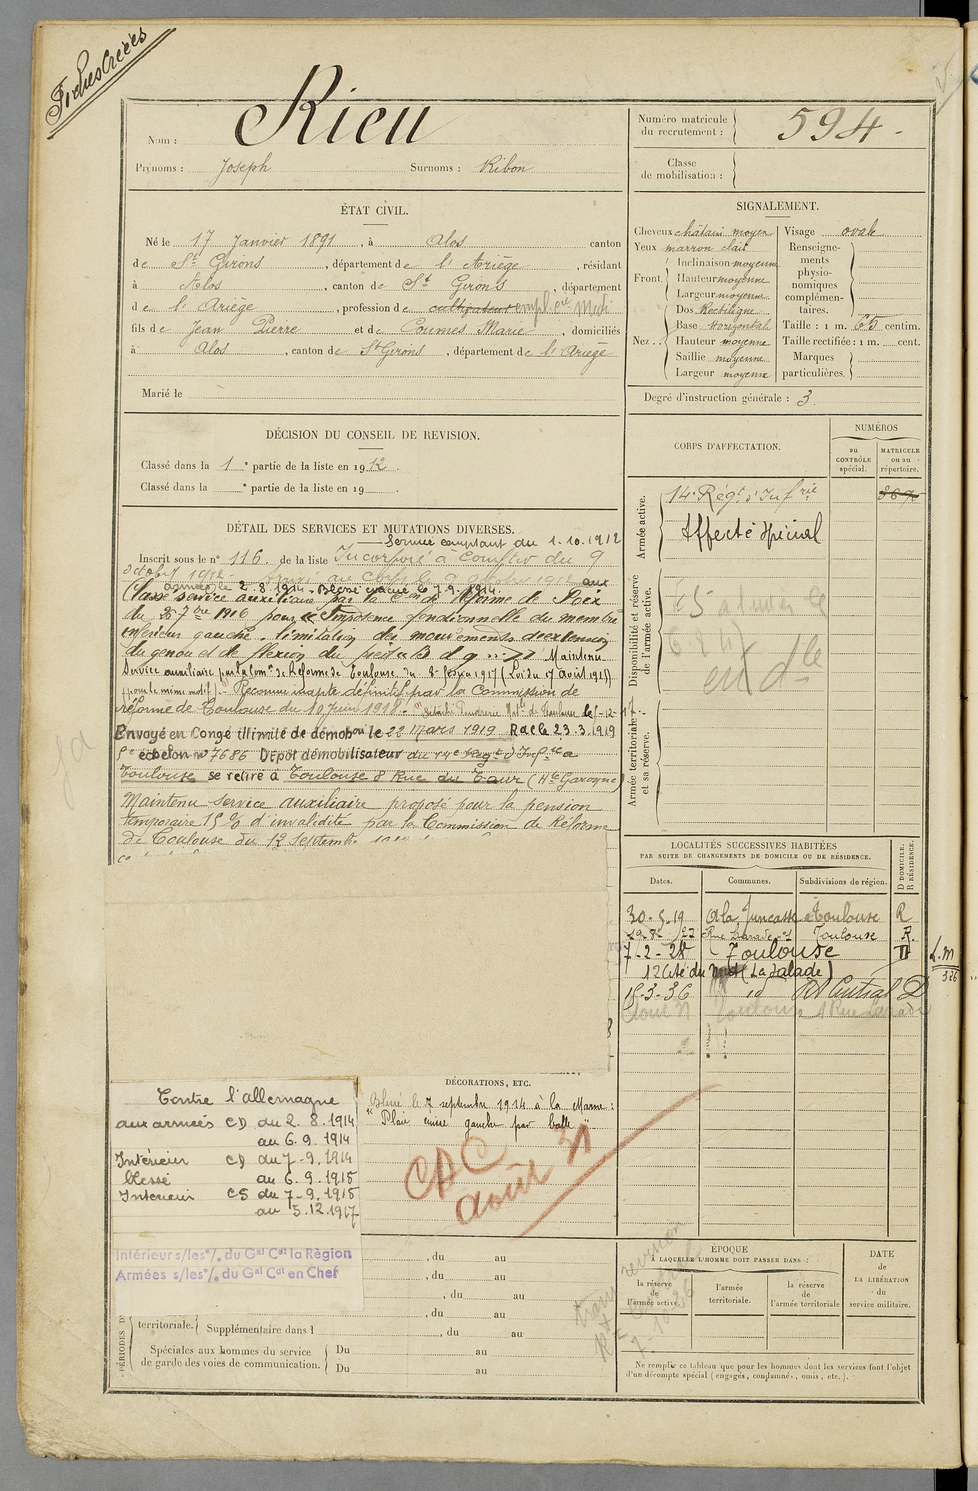 Nom : Rieu
Prénoms : Joseph Surnoms : Ribon
Numéro matricule du recrutement : 594
Classe de mobilisation :
ÉTAT CIVIL.
Né le 17 Janvier 1891, à Alos canton
de St Girons, département de l'Ariège, résidant
à Alos, canton de St Girons, département
de l'Ariège, profession de cultivateur empl. Midi
fils de Jean Pierre et de Coumes Marie, domiciliés
à Alos, canton de St Girons, département de l'Ariège
Marié le
SIGNALEMENT.
Cheveux châtain moyen
Yeux marron clair
Front Inclinaison moyenne
Hauteur moyenne
Largeur moyenne
Nez Dos Rectiligne
Base Horizontale
Hauteur moyenne
Saillie moyenne
Largeur moyenne
Visage ovale
Renseignements physionomiques complémentaires.
Taille : 1 m. 65 centim.
Taille rectifiée : 1 m. cent.
Marques particulières.
Degré d'instruction générale : 3
DÉCISION DU CONSEIL DE REVISION.
Classé dans la 1e partie de la liste en 1912.
Classé dans la e partie de la liste en 19
CORPS D'AFFECTATION.
NUMÉROS
au CONTRÔLE spécial.
MATRICULE ou au répertoire.
Armée active.
14e Régt d'Infrie
Affecté spécial
Disponibilité et réserve de l'armée active.
Armée territoriale et sa réserve.
DÉTAIL DES SERVICES ET MUTATIONS DIVERSES.
Service comptant du 1-10-1912
Inscrit sous le n° 116 de la liste Incorporé à compter du 9
octobre 1912. aux
armées le 2.8.1914. Blessé évacué le 7.9.1914.
Classé service auxiliaire par la Con de Réforme de Foix
du 27 7bre 1916 pour Impotence fonctionnelle du membre
inférieur gauche. limitation des mouvements d'extension
du genou et de flexion du pied Maintenu
Service auxiliaire par la Comon de Réforme de Toulouse du 8 1917 (Loi du 17 août 1915)
(pour le même motif). Reconnu inapte définitif par la Commission de
réforme de Toulouse du 10 Juin 1918. détaché Poudrerie Nale de Toulouse le 5-12-17.
Envoyé en Congé illimité de démobon le 22 Mars 1919 RAC le 23.3.1919
échelon n° 7686 Dépôt démobilisateur du 14e Régt d'Infie à
Toulouse se retire à Toulouse 8 Rue du Taur (Hte Garonne)
Maintenu service auxiliaire proposé pour la pension
temporaire 15 % d'invalidité par la Commission de Réforme
de Toulouse du 12 Septembre
LOCALITÉS SUCCESSIVES HABITÉES
PAR SUITE DE CHANGEMENTS DE DOMICILE OU DE RÉSIDENCE.
Dates. Communes. Subdivisions de région. D DOMICILE. R RÉSIDENCE.
30-5-19 Toulouse R
Toulouse R.
7-2-28 Toulouse D
12 Cité du Nord (La Salade)
15-3-36 id Rt Central D
L.M
326
DÉCORATIONS, ETC.
Blessé le 7 septembre 1914 à la Marne :
"Plaie cuisse gauche par balle"
CAC
août 31
Contre l'allemagne
aux armées CD du 2.8.1914
au 6.9.1914
Intérieur CD du 7-9.1914
blessé au 6.9.1915
Intérieur CS du 7-9.1915
au 5.12.1917
Intérieur s/les o/. du Gal Cdt la Région
Armées s/les o/. du Gal Cdt en Chef
, du au
, du au
, du au
, du au
territoriale. Supplémentaire dans l , du au
Spéciales aux hommes du service de garde des voies de communication. Du au
Du au
ÉPOQUE
A LAQUELLE L'HOMME DOIT PASSER DANS :
la réserve de l'armée active.
l'armée territoriale.
la réserve de l'armée territoriale
DATE de LA LIBÉRATION du service militaire.
Ne remplir ce tableau que pour les hommes dont les services font l'objet
d'un décompte spécial (engagés, condamnés, omis, etc.).